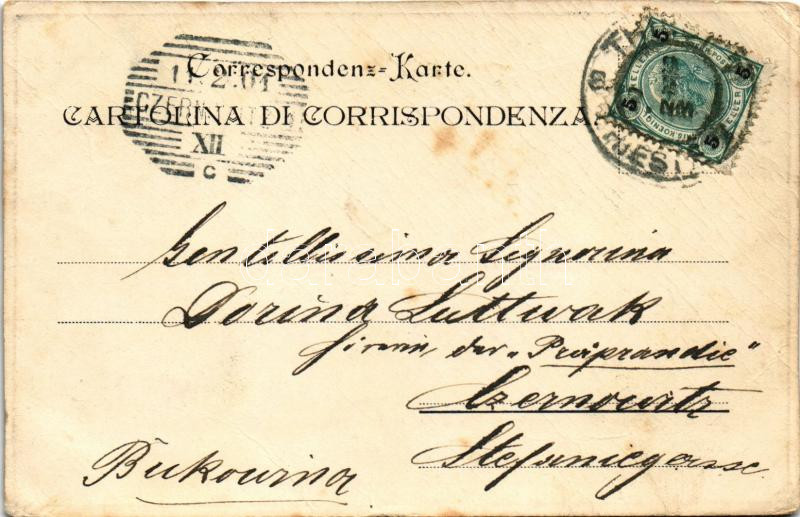 Correspondenz=Karte.
CARTOLINA DI CORRISPONDENZA
11 2.01
CZER
XII
C
5
HELLER
5
Gentillissima Signorina
Dorina Luttwak
der „Präprandie"
Czernowitz
Stefaniegasse
Bukowina